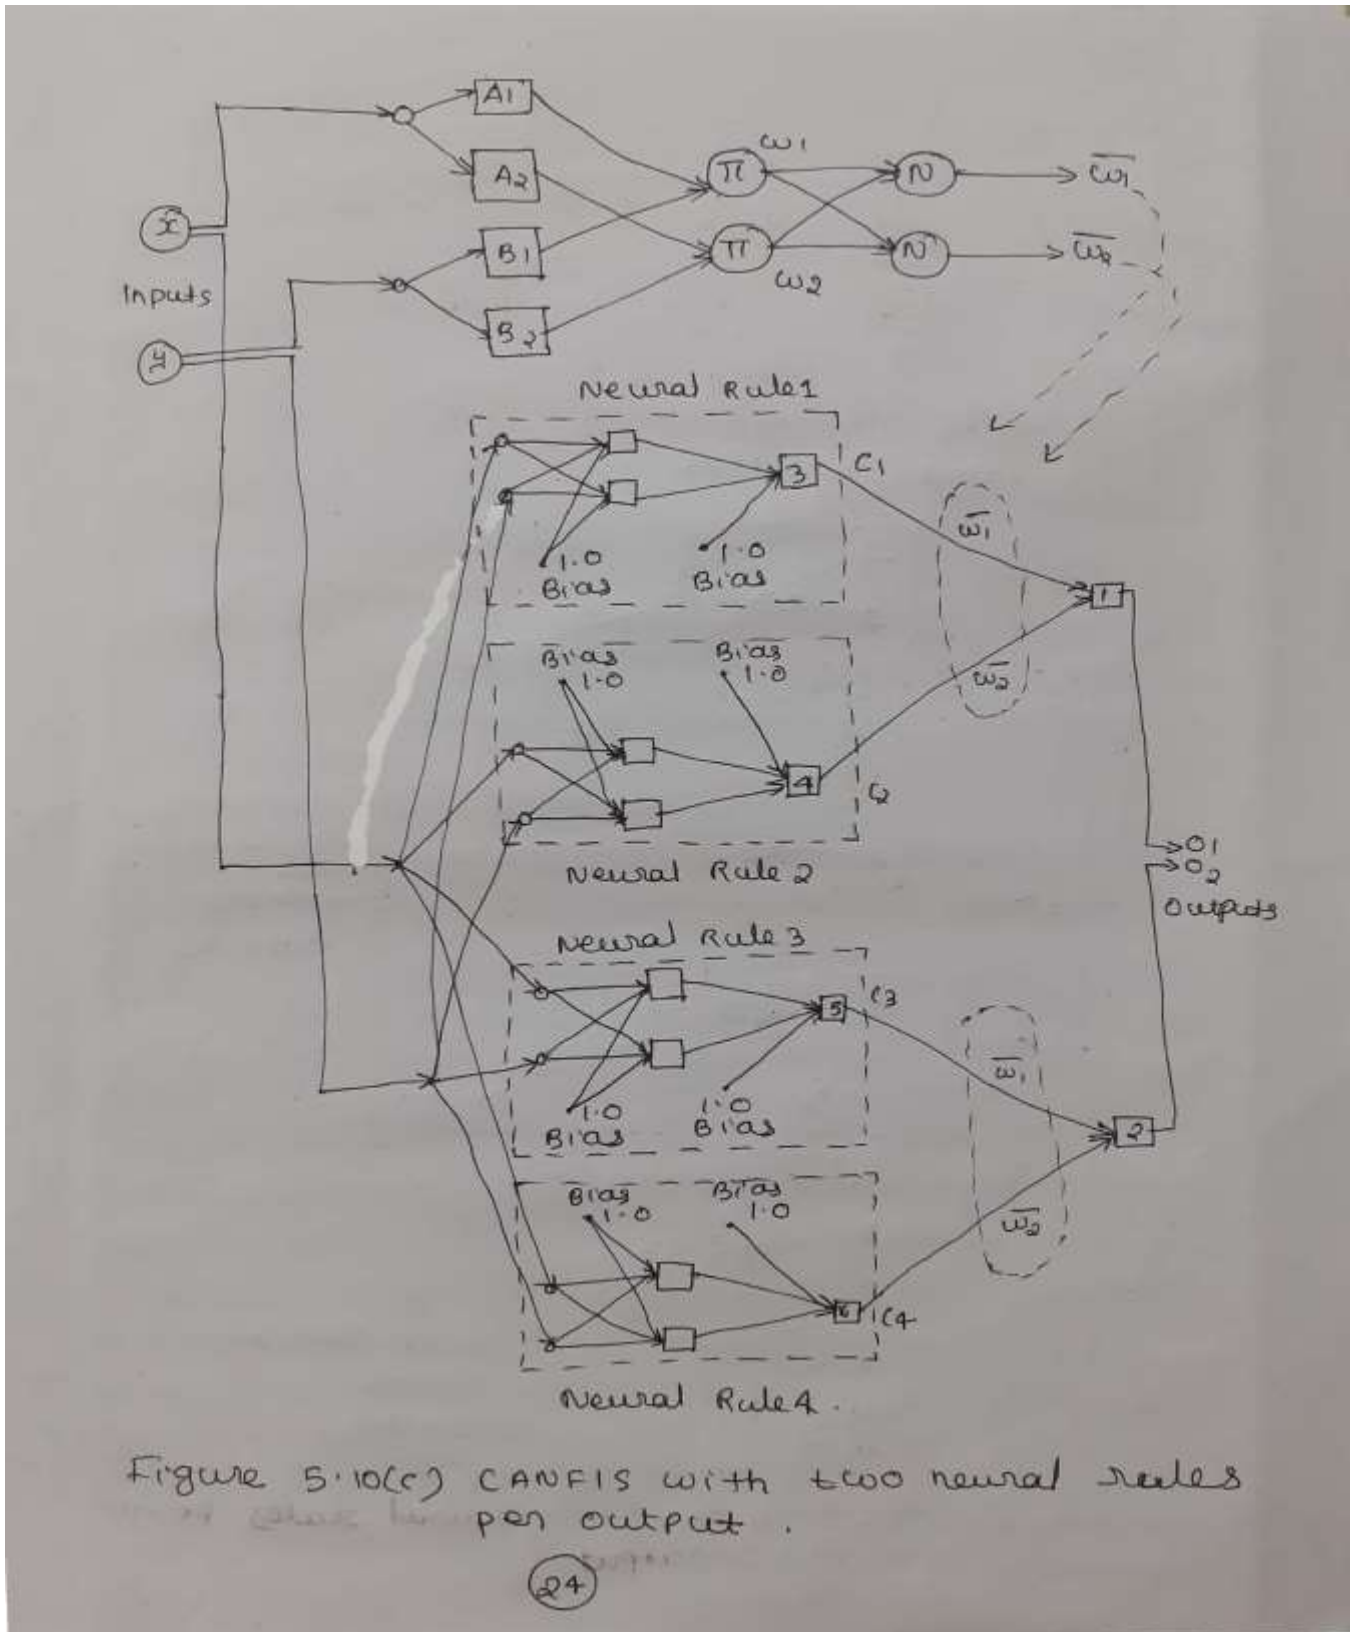 A1
A2
B1
B2
x
Inputs
y
π
ω1
N
ω̅1
π
ω2
N
ω̅2
Neural Rule1
3
C1
1.0
Bias
1.0
Bias
ω̅1
1
ω̅2
Bias
1.0
Bias
1.0
4
C2
Neural Rule 2
O1
O2
Outputs
Neural Rule 3
5
C3
1.0
Bias
1.0
Bias
ω̅1
2
ω̅2
Bias
1.0
Bias
1.0
6
C4
Neural Rule 4.
Figure 5.10(c) CANFIS with two neural rules
per output.
24